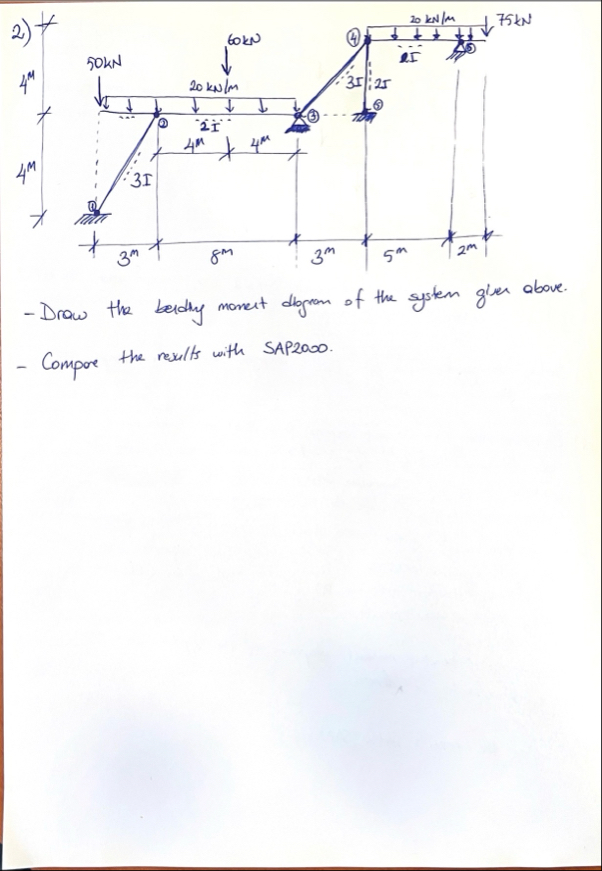 2)
20 kN/m 75kN
60kN
50kN
20 kN/m
4M
4M
④
3I 2I
2I
⑤
⑤
②
2I
③
4M 4M
3I
①
3M 8M 3M 5M 2M
- Draw the bending moment diagram of the system given above.
- Compare the results with SAP2000.